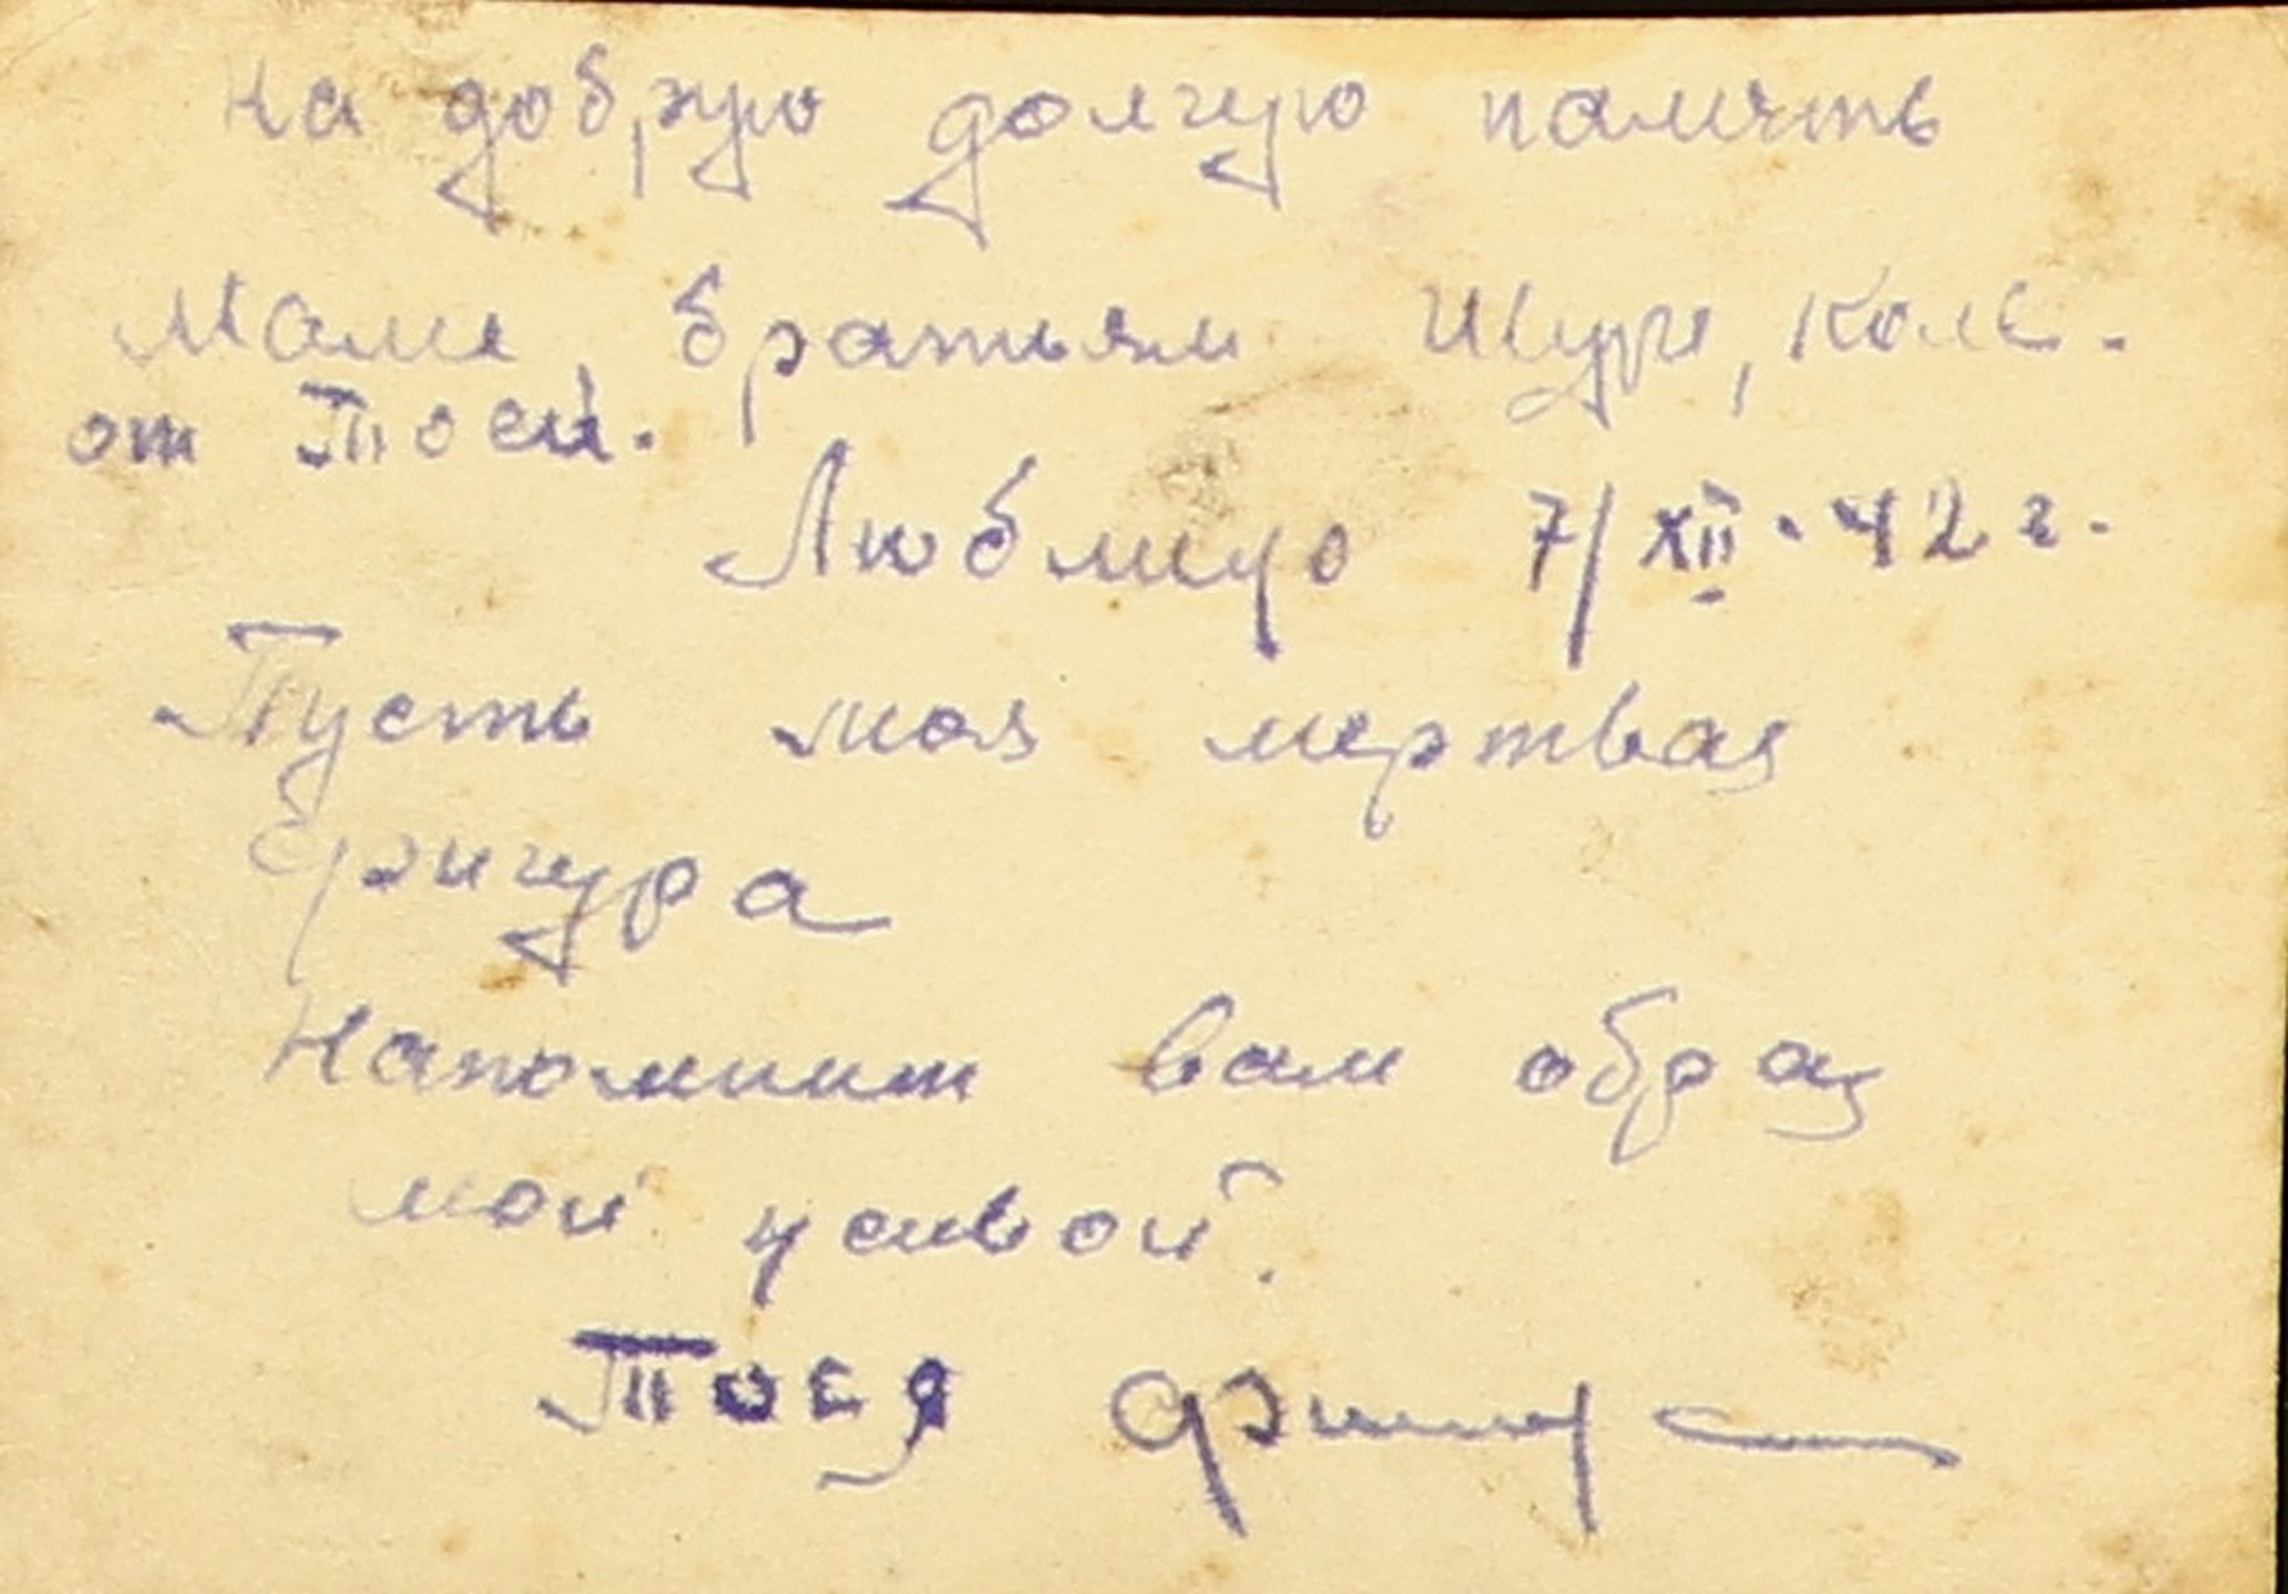 На добрую долгую память
Маме, братьям Шуре, Коле.
от Тоси.
Люблино 7/XII. 42 г.
Пусть моя мертвая
фигура
Напомнит вам образ
мой живой.
Тося